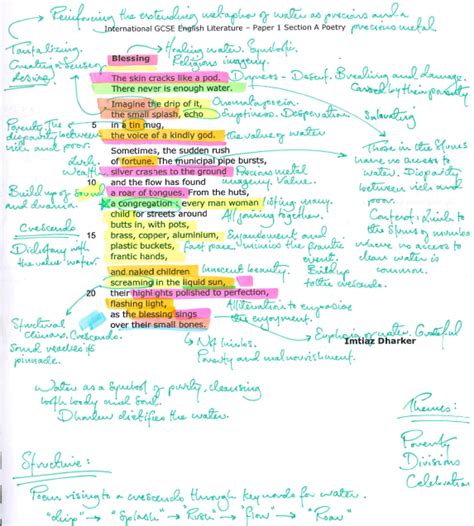 Reinforcing the extending metaphor of water as precious and a precious metal
International GCSE English Literature – Paper 1 Section A Poetry
Tantalizing.
Creating a sense
desire.
Healing water. Symbolic.
Religious imagery.
Blessing
The skin cracks like a pod.
There never is enough water.
Dryness - Desert. Breaking and damage.
Caused by their poverty
Imagine the drip of it,
the small splash, echo
5 in a tin mug,
the voice of a kindly god.
Onomatopoeia.
Emptiness. Desperation
the value of water
Poverty. The
disparity between
rich and poor.
Sometimes, the sudden rush
of fortune. The municipal pipe bursts,
silver crashes to the ground
10 and the flow has found
a roar of tongues. From the huts,
a congregation : every man woman
child for streets around
butts in, with pots,
15 brass, copper, aluminium,
plastic buckets,
frantic hands,
luck.
wealth
Precious metal
imagery. Value.
Build up of sound
and drama.
Crescendo
listing many.
All joining together.
fast pace. mimics the frantic
event.
Build up
to the crescendo.
Those in the slums
have no access to
water. Disparity
between rich and
poor.
Context: Links to
the slums of Mumbai
where no access to
clean water is
common.
and naked children
screaming in the liquid sun,
20 their highlights polished to perfection,
flashing light,
as the blessing sings
over their small bones.
Innocent beauty.
Alliteration to emphasise
the enjoyment.
Structural
climax. Crescendo.
Sound reaches its
pinnacle.
Imtiaz Dharker
Poverty and malnourishment.
Water as a symbol of purity, cleansing
both body and soul.
Dharker deifies the water.
Themes:
Poverty
Divisions
Celebration
Structure:
Poem rising to a crescendo through keywords for water.
"drip" → "Splash" → "Rush" → "flow" → "Roar"